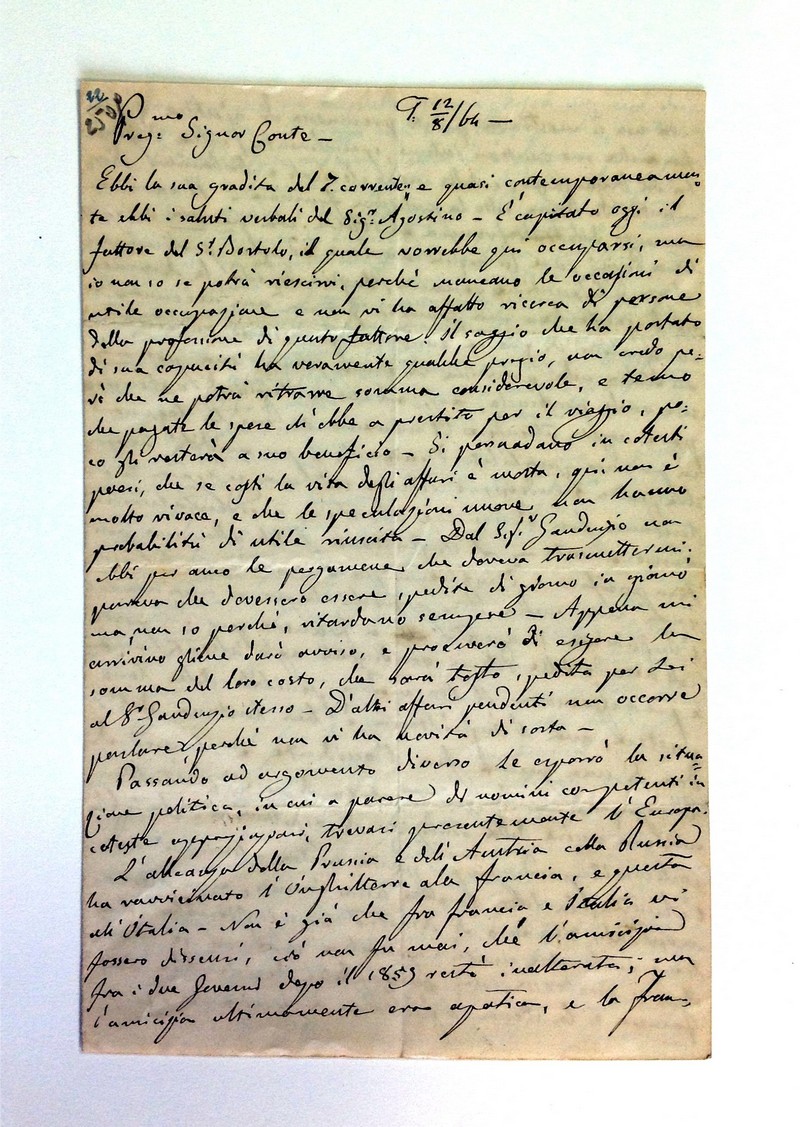 22
T. 12/8/64 —
Preg.mo Signor Conte —
Ebbi la sua gradita del 7. corrente, e quasi contemporaneamen=
te ebbi i saluti verbali del Sigr. Agostino — È capitato oggi il
fattore del Sr. Bortolo, il quale vorrebbe qui occuparsi, ma
io non so se potrà riescirvi, perchè mancano le occasioni di
utile occupazione e non vi ha affatto ricerca di persone
della professione di questo fattore. Il saggio che ha portato
di sua capacità ha veramente qualche pregio, non credo pe=
rò che ne potrà ritrarre somma considerevole, e temo
che pagate le spese ch'ebbe a prestito per il viaggio, po=
co gli resterà a suo beneficio — Si persuadano in cotesti
paesi, che se costì la vita degli affari è morta, qui non è
molto vivace, e che le speculazioni nuove non hanno
probabilità di utile riuscita — Dal Sigr. Gaudenzio non
ebbi per anco le pergamene che doveva trasmettermi.
pareva che dovessero essere spedite di giorno in giorno
ma, non so perchè, ritardano sempre — Appena mi
arrivino gliene darò avviso, e procurerò di esigere la
somma del loro costo, che sarà tosto spedita per Lei
al Sr. Gaudenzio stesso — D'altri affari pendenti non occorre
parlare, perchè non vi ha novità di sorta —
Passando ad argomento diverso Le esporrò la situa=
zione politica, in cui a parere di uomini competenti in
coteste trovasi presentemente l'Europa.
L'alleanza della Prussia e dell'Austria colla Russia
ha ravvicinato l'Inghilterra alla Francia, e questa
all'Italia — Non è già che fra Francia e Italia vi
fossero dissensi, ciò non fu mai, chè l'amicizia
fra i due Governi dopo il 1859 restò inalterata; ma
l'amicizia ultimamente era apatica, e la Fran=